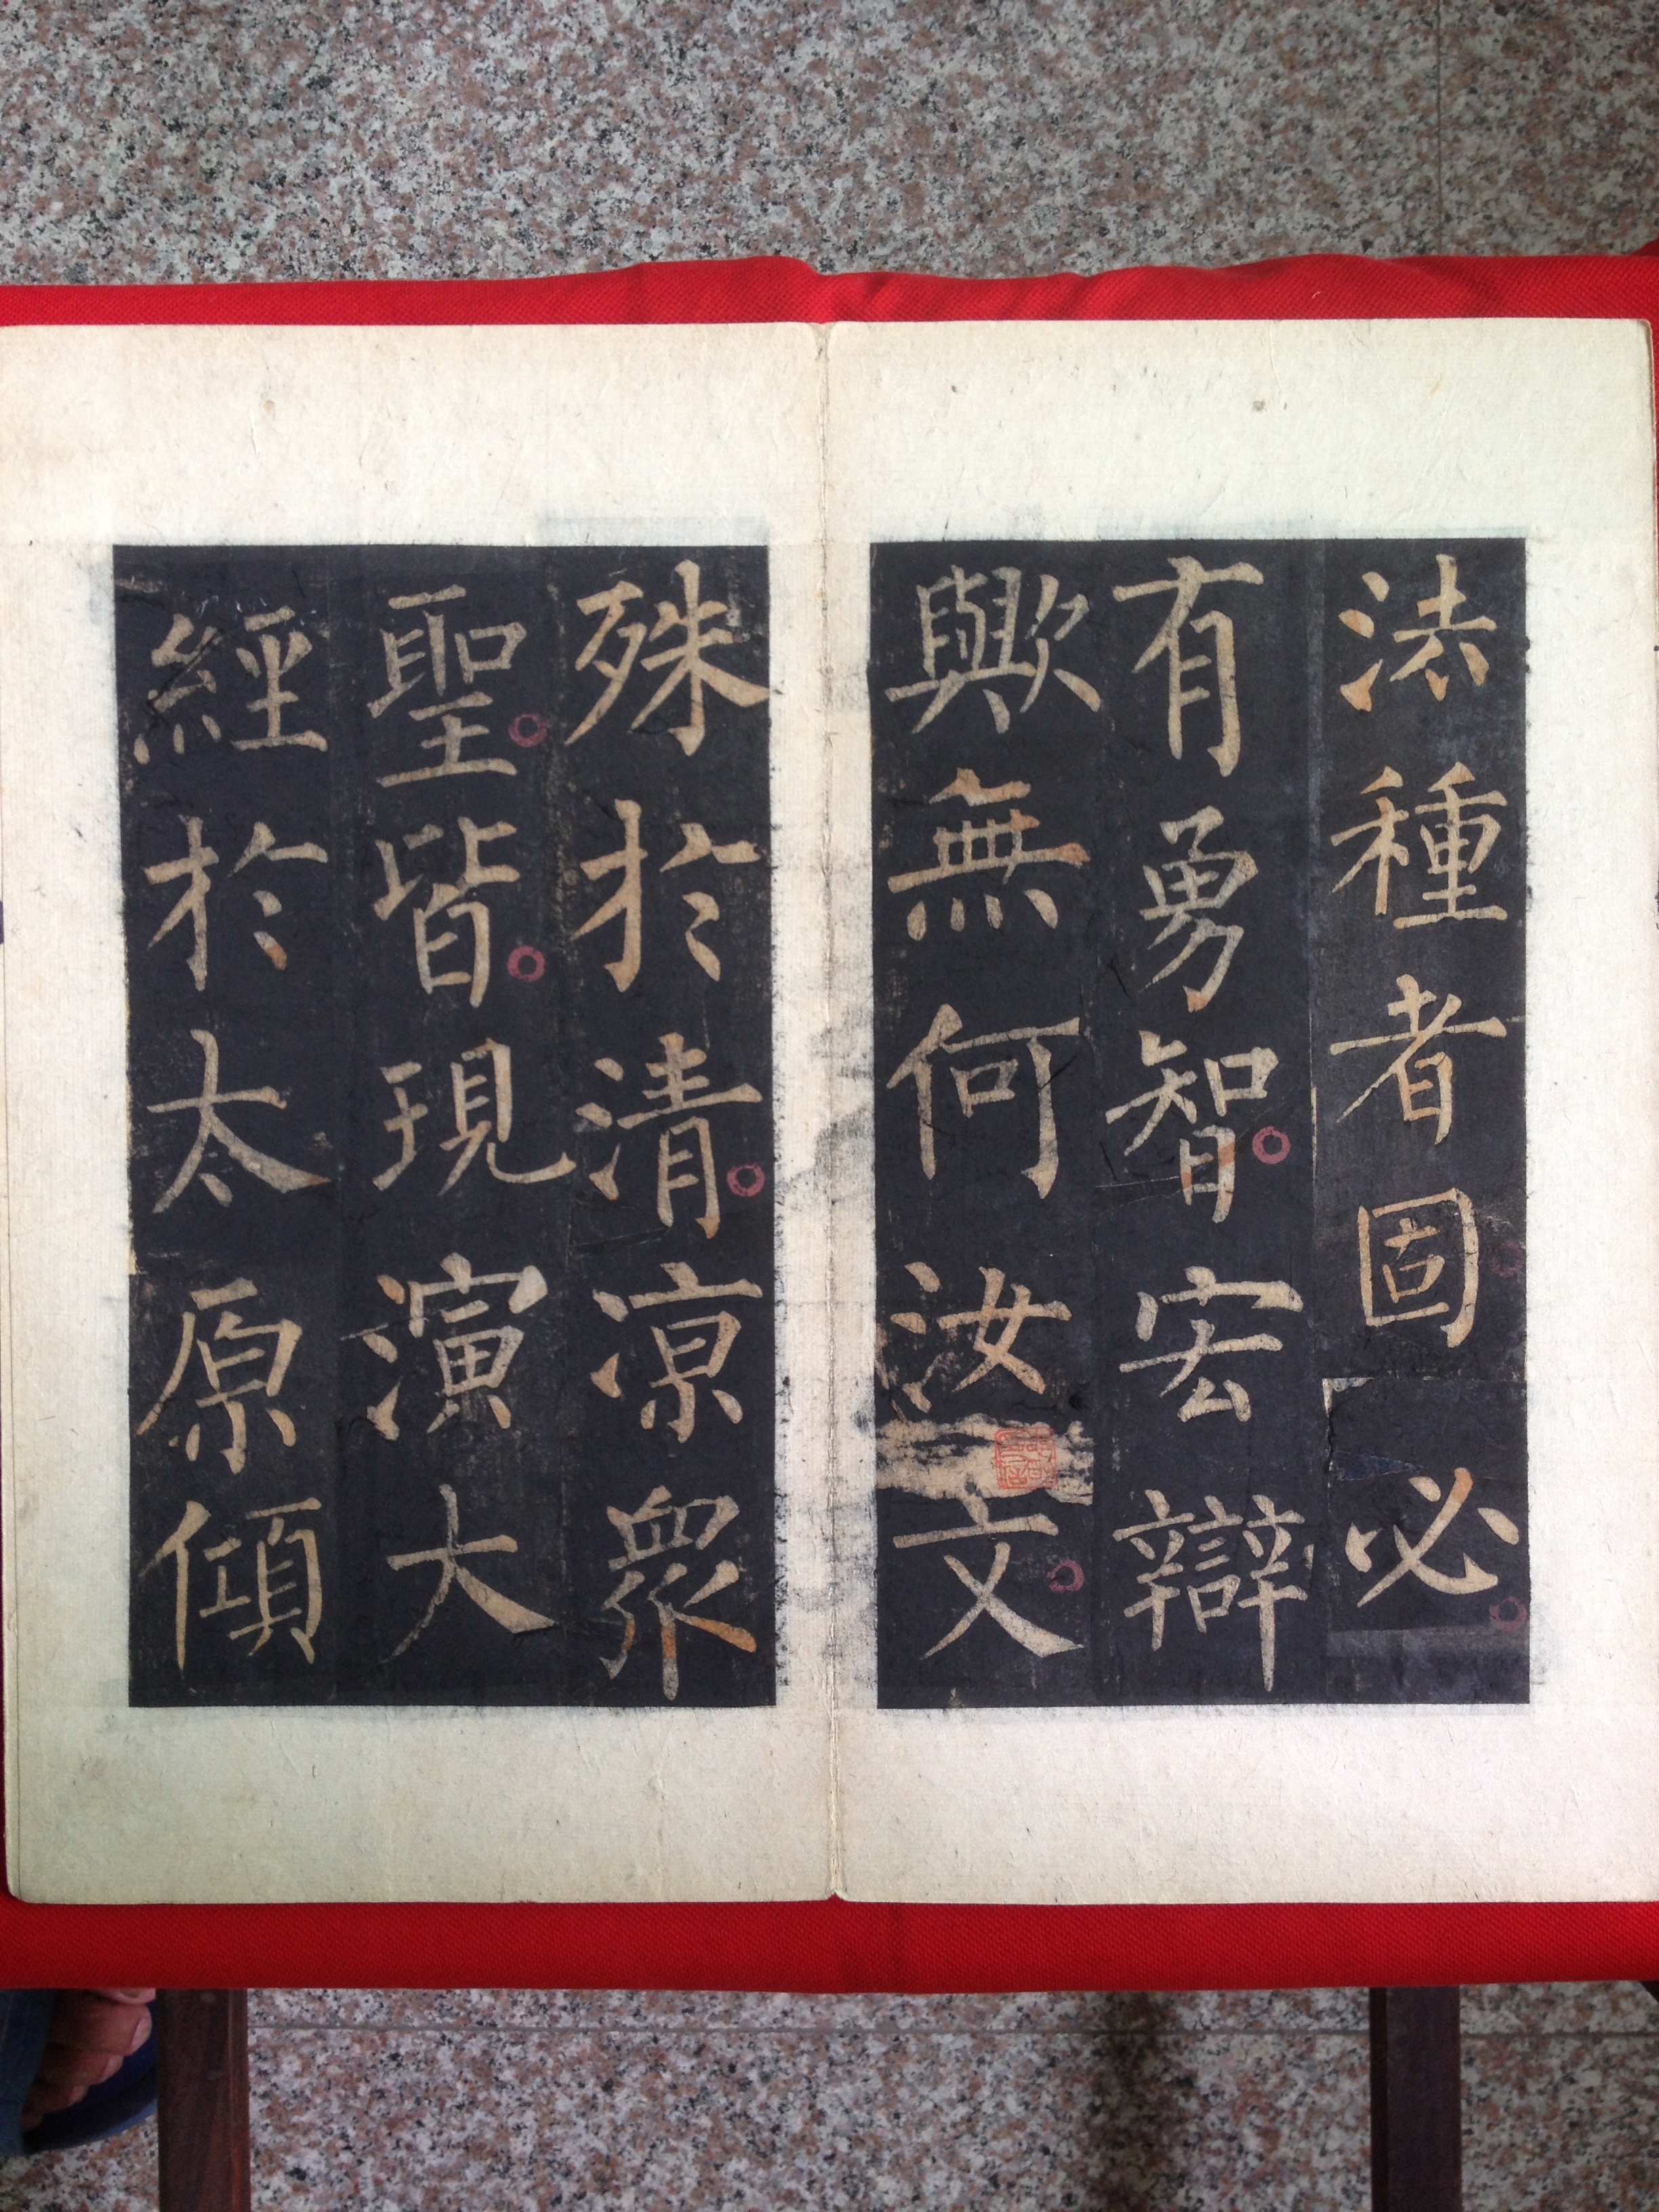 法種者固必
有勇智宏辯
歟無何汝文
殊於清涼衆
聖皆現演大
經於太原傾